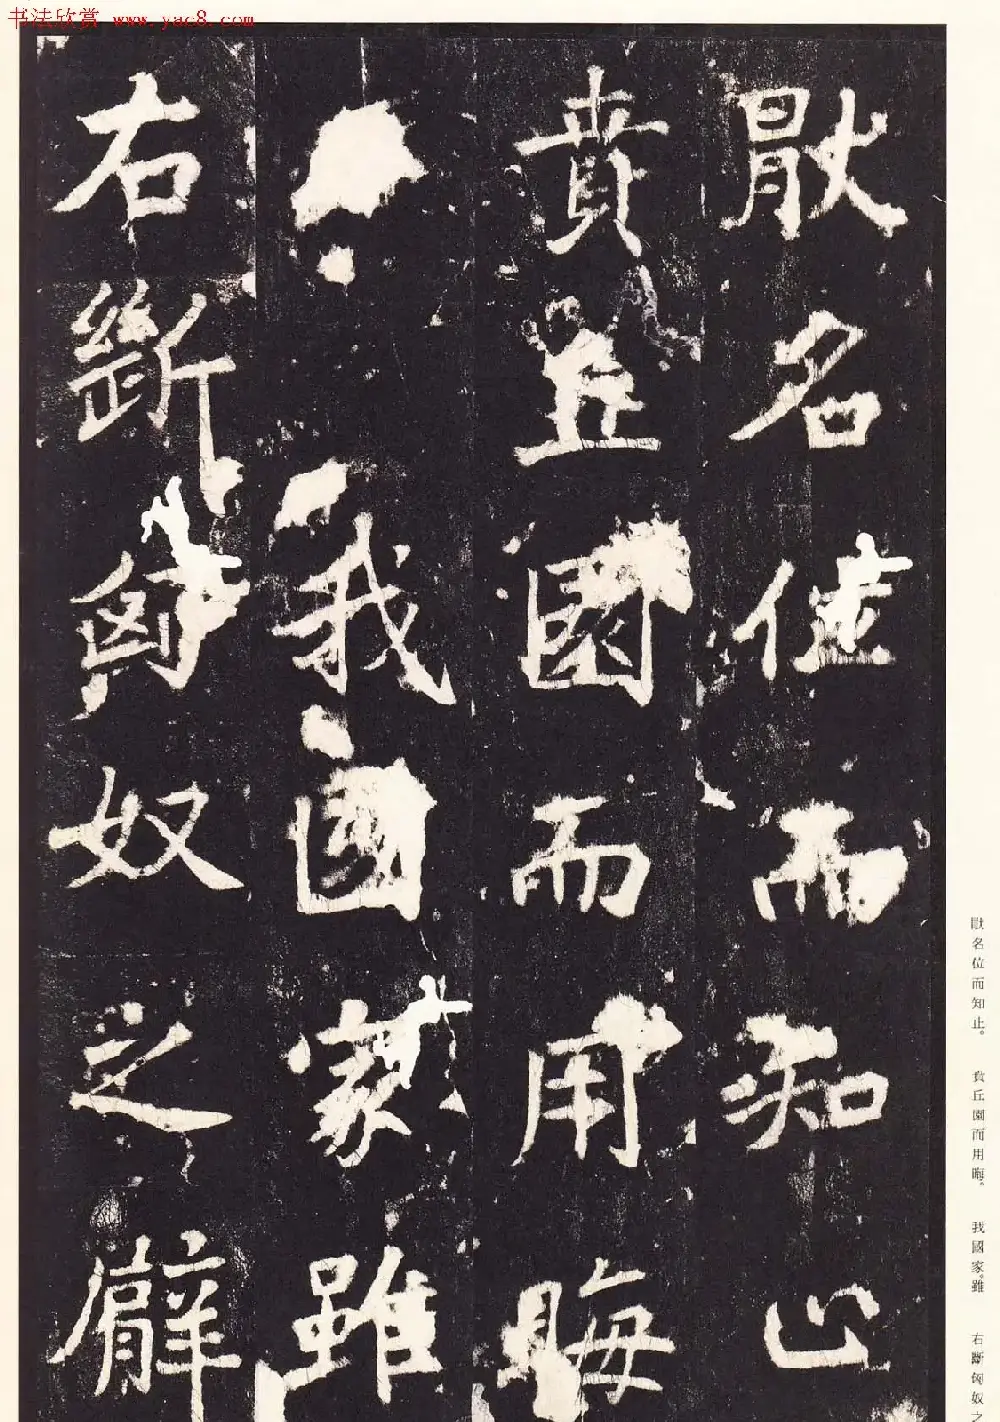 书法欣赏 www.yac8.com
猒名位而知止
賁丘園而用晦
我國家雖
右斷匈奴之臂
猒名位而知止。 賁丘園而用晦。 我國家。雖 右斷匈奴之